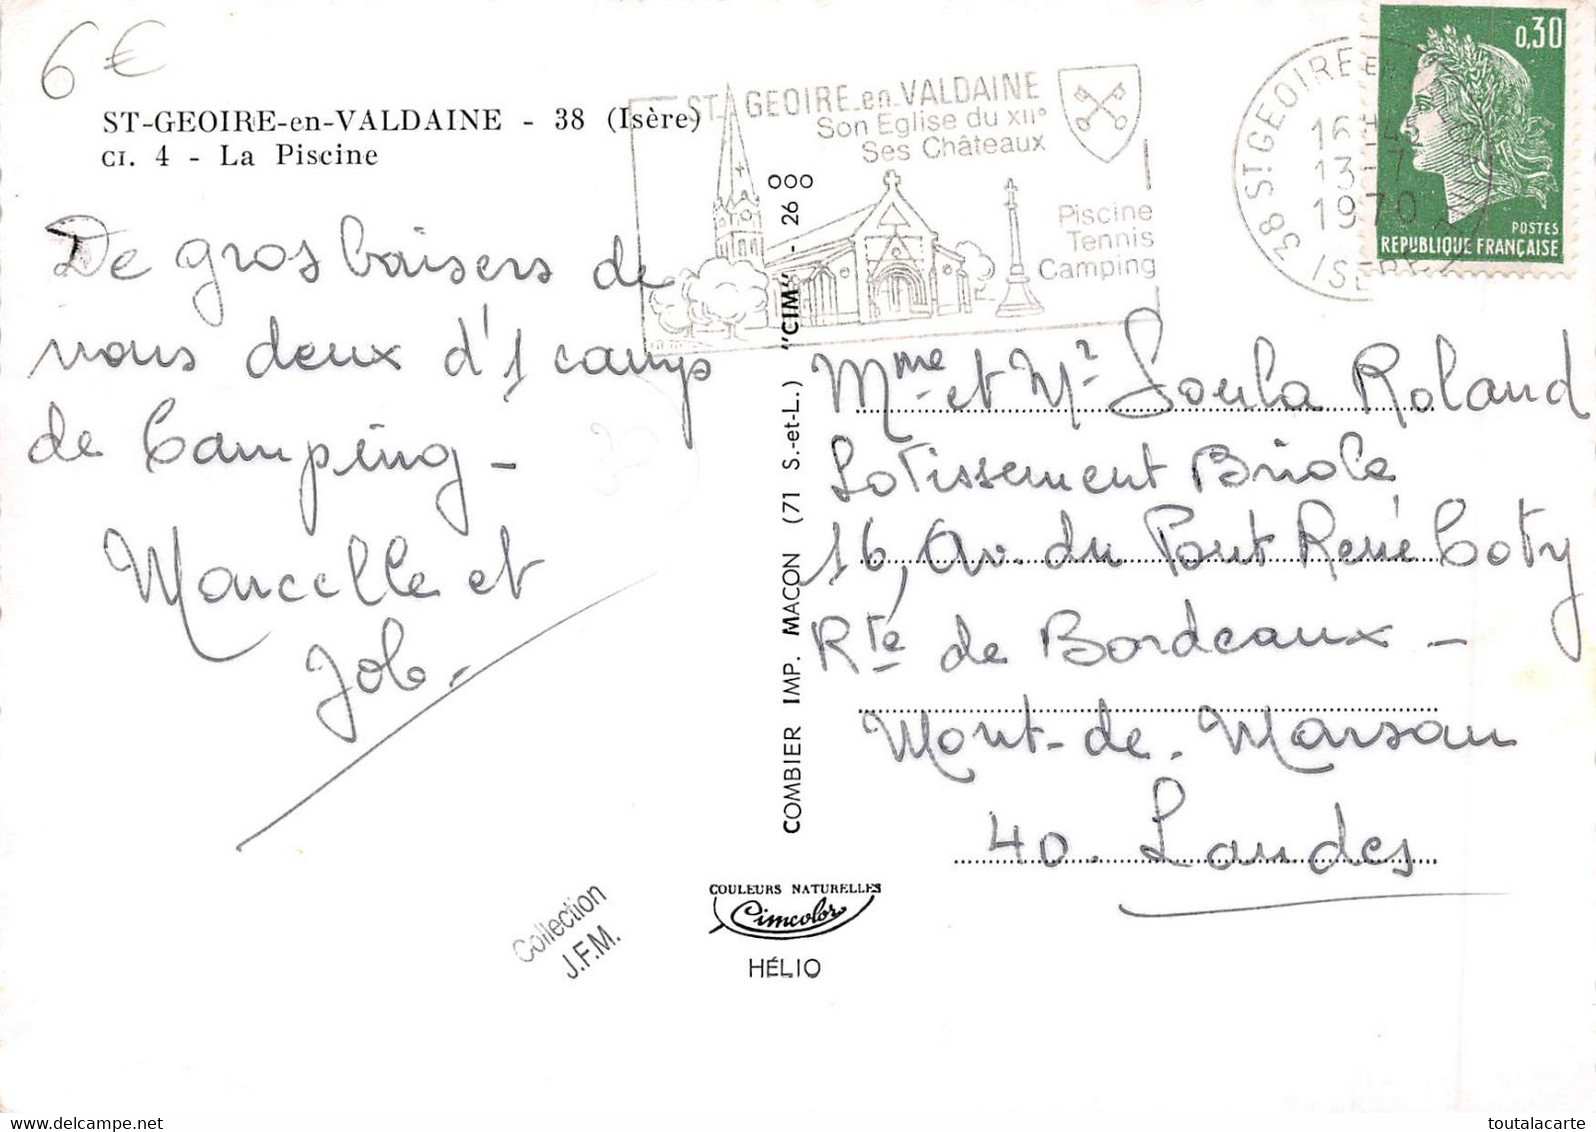 6€
ST-GEOIRE-en-VALDAINE - 38 (Isère)
CI. 4 - La Piscine
De gros baisers de
nous deux d'1 camp
de Camping -
Marcelle et
Job.
Collection
J.F.M.
ST-GEOIRE-en-VALDAINE
Son Eglise du XIIº
Ses Châteaux
Piscine
Tennis
Camping
38 ST GEOIRE EN
13-7
1970
ISERE
0,30
POSTES
REPUBLIQUE FRANÇAISE
COMBIER IMP. MACON (71 S.-et-L.) "CIM" - 26 000
COULEURS NATURELLES
Cimcolor
HÉLIO
Mme et Mr Soula Roland
Lotissement Briole
16, Av. du Pont René Coty
Rte de Bordeaux -
Mont-de-Marsan
40. Landes
Delcampe.net
toutalacarte